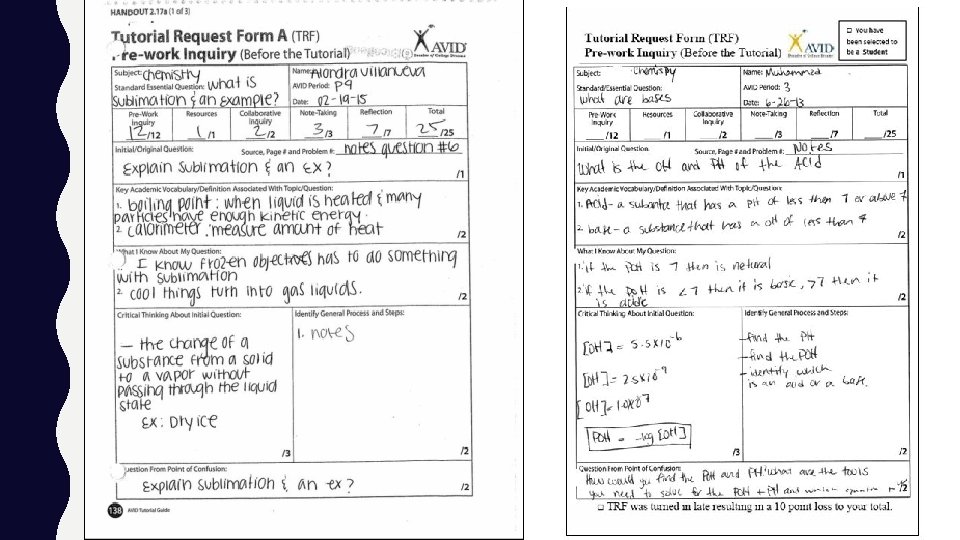 HANDOUT 2.17a (1 of 3)
Tutorial Request Form A (TRF)
Pre-work Inquiry (Before the Tutorial)
AVID
Subject: Chemistry
Name: Alondra Villanueva
Standard/Essential Question: What is
AVID Period: P9
sublimation & an example?
Date: 02-19-15
Pre-Work Inquiry
Resources
Collaborative Inquiry
Note-Taking
Reflection
Total
12/12
1/1
2/2
3/3
7/7
25/25
Initial/Original Question:
Source, Page # and Problem #: notes question #6
Explain Sublimation & an Ex?
/1
Key Academic Vocabulary/Definition Associated With Topic/Question:
1. boiling point: when liquid is heated & many
particles have enough kinetic energy.
2. calorimeter: measure amount of heat
/2
What I Know About My Question:
1. I know frozen objectives has to do something
with sublimation
2. cool things turn into gas liquids.
/2
Critical Thinking About Initial Question:
Identify General Process and Steps:
– the change of a
substance from a solid
to a vapor without
passing through the liquid
state
Ex: Dry ice
/3
1. notes
/2
Question From Point of Confusion:
Explain sublimation & an ex?
/2
138 AVID Tutorial Guide
Tutorial Request Form (TRF)
Pre-work Inquiry (Before the Tutorial)
AVID
□ You have
been selected to
be a Student
Subject: Chemistry
Name: Muhammed
Standard/Essential Question:
AVID Period: 3
what are bases
Date: 6-26-13
Pre-Work Inquiry
Resources
Collaborative Inquiry
Note-Taking
Reflection
Total
/12
/1
/2
/3
/7
/25
Initial/Original Question:
Source, Page # and Problem #: Notes
What is the OH and PH of the Acid
/1
Key Academic Vocabulary/Definition Associated With Topic/Question:
1. Acid- a subantce that has a PH of less then 7 or above 7
2. base- a substance that has a of less than 7
/2
What I Know About My Question:
1. if the POH is 7 then is netural
2. if the POH is <7 then it is basic, >7 then it
is acidic
/2
Critical Thinking About Initial Question:
Identify General Process and Steps:
[OH] = 5.5x10-6
[OH] = 2.5x10-9
[OH] = 1.0x10
POH = -log [OH]
/3
-find the PH
-find the POH
-identify which
is an acid or a base.
/2
Question From Point of Confusion:
How would you find the POH and PH? what are the tools
you need to solve for the POH + PH and
/2
□ TRF was turned in late resulting in a 10 point loss to your total.